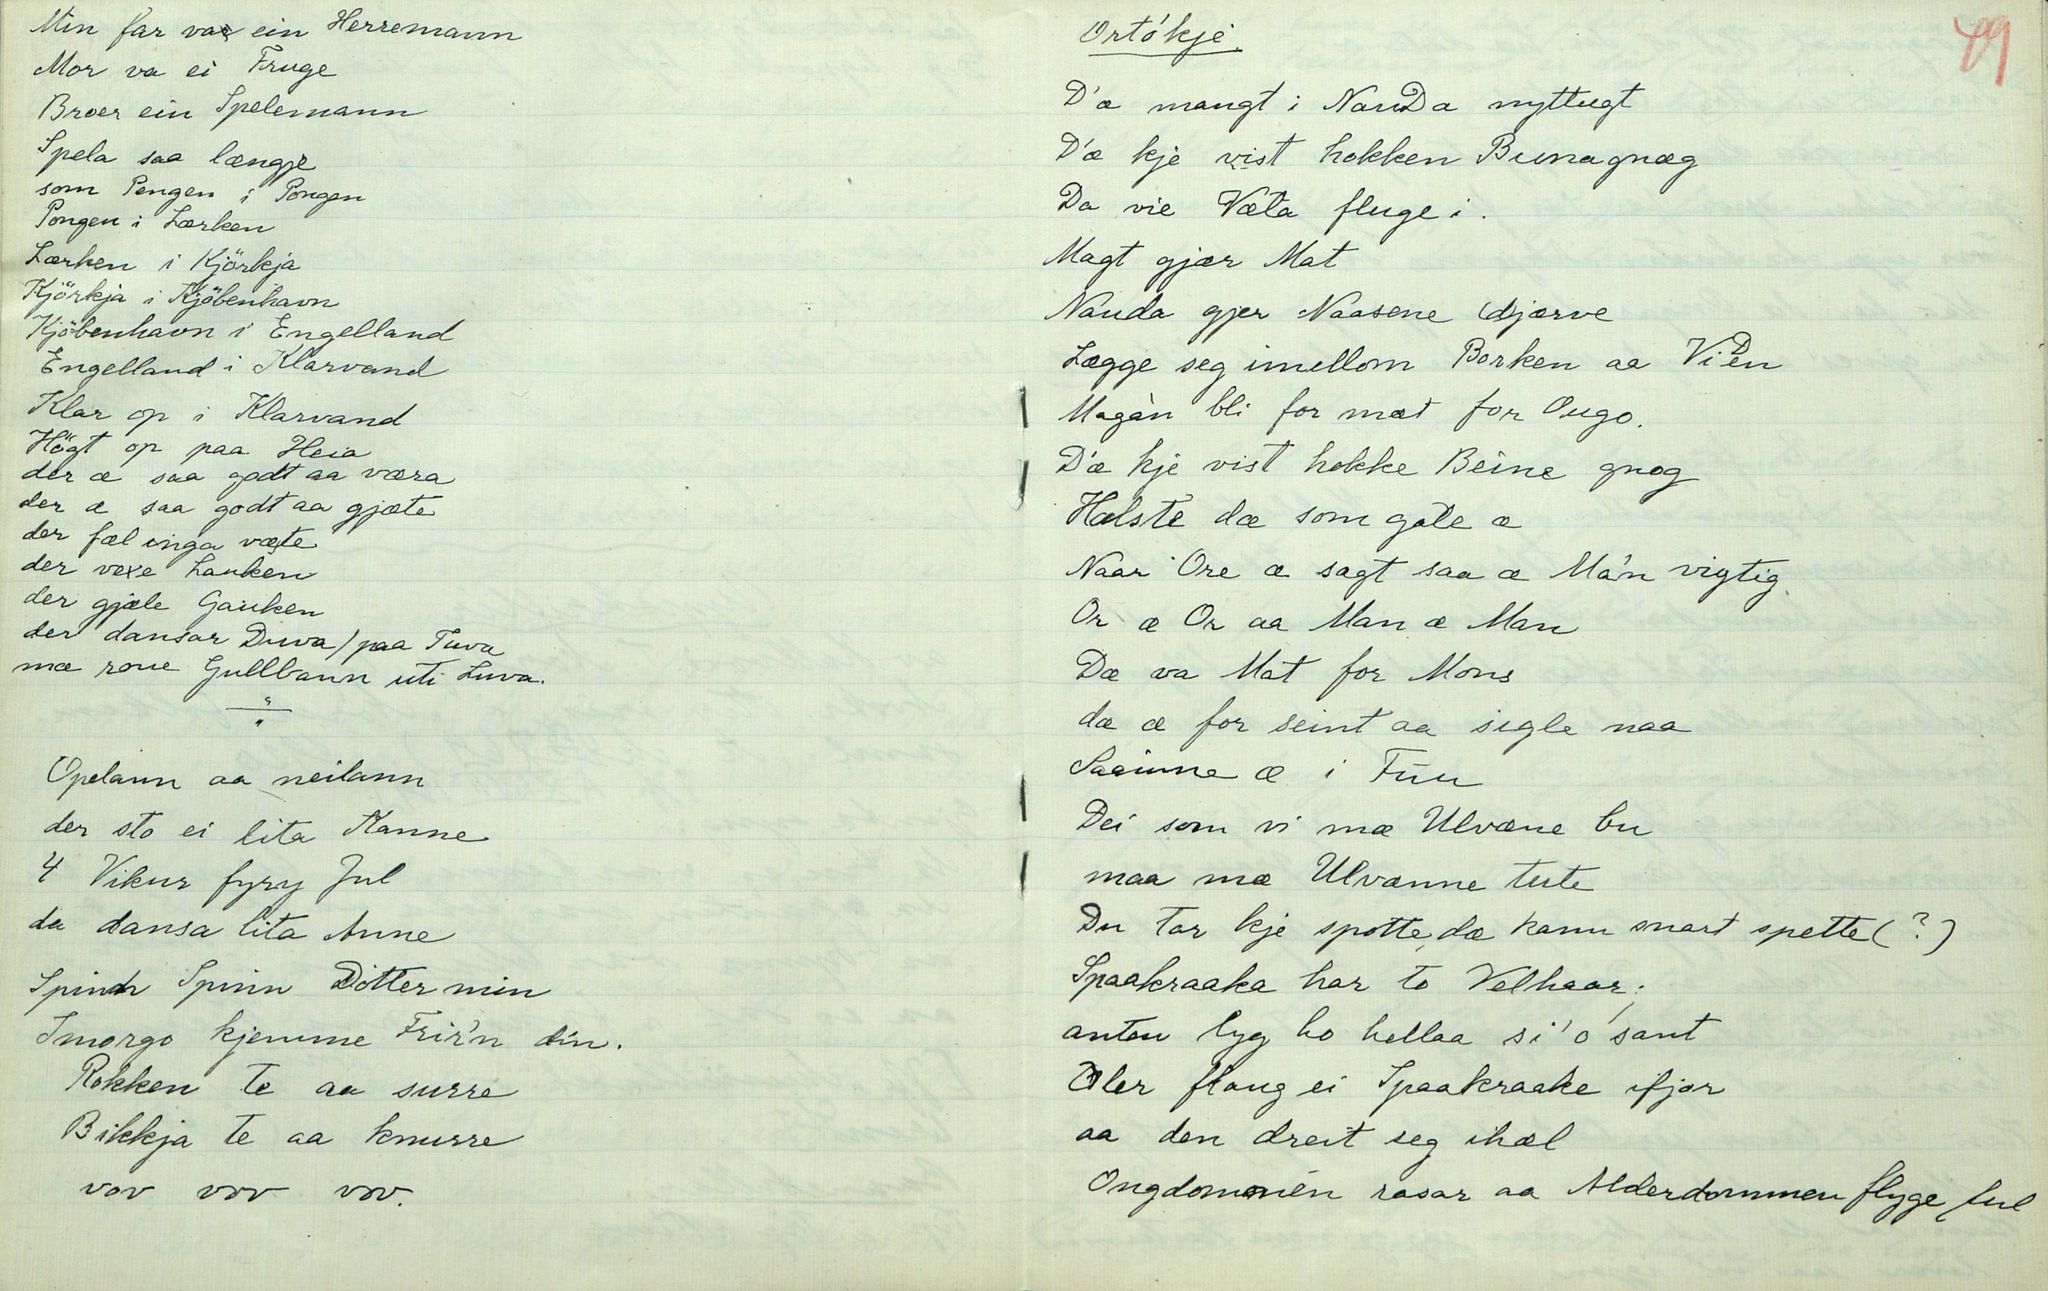 Min far var ein Herremann
Mor va ei Fruge
Broer ein Spelemann
Spela saa længje
som Pengen i Pongen
Pongen i Lærken
Lærken i Kjörkja
Kjörkja i Kjöbenhavn
Kjöbenhavn i Engelland
Engelland i Klarvand
Klar op i Klarvand
Högt op paa Heia
der æ saa godt aa væra
der æ saa godt aa gjæte
der fæl inga væte
der vexe Lauken
der gjæle Gauken
der dansar Duva / paa Tuva
mæ roue Gullbann uti Luva.
Opelann aa neilann
der sto ei lita Kanne
4 Vikur fyry Jul
da dansa lita Anne
Spinn Spinn Dotter min
Imorgo kjemme Frir'n din.
Rokken te aa surre
Bikkja te aa knurre
vov vov vov.
49
Ortókje
D'æ mangt i NauDa nyttugt
D'æ kje vist hokken Buna gnæg
Da vie Væta fluge i.
Magt gjær Mat
Nauda gjer Naasene djærve
Lægge seg imellom Borken aa ViDen
Magàn bli for mæt for Ougo.
D'æ kje vist hokke Beine gnog
Hælste dæ som gale æ
Naar Ore æ sagt saa æ Má'n vigtig.
Or æ Or aa Man æ Man
Dæ va Mat for Mons
dæ æ for seint aa sigle naa
Saainne æ i Fuu
Dei som vi mæ Ulvæne bu
maa mæ Ulvanne tute
Du tar kje spotte, dæ kann snart spette (?)
Spaakraaka har to Velhaar;
anten lyg ho hellaa si' o' sant
Dler flaug ei Spaakraake ifjor
aa den dreit seg ihæl
Ongdommen rasar aa Alderdommen flyge ful